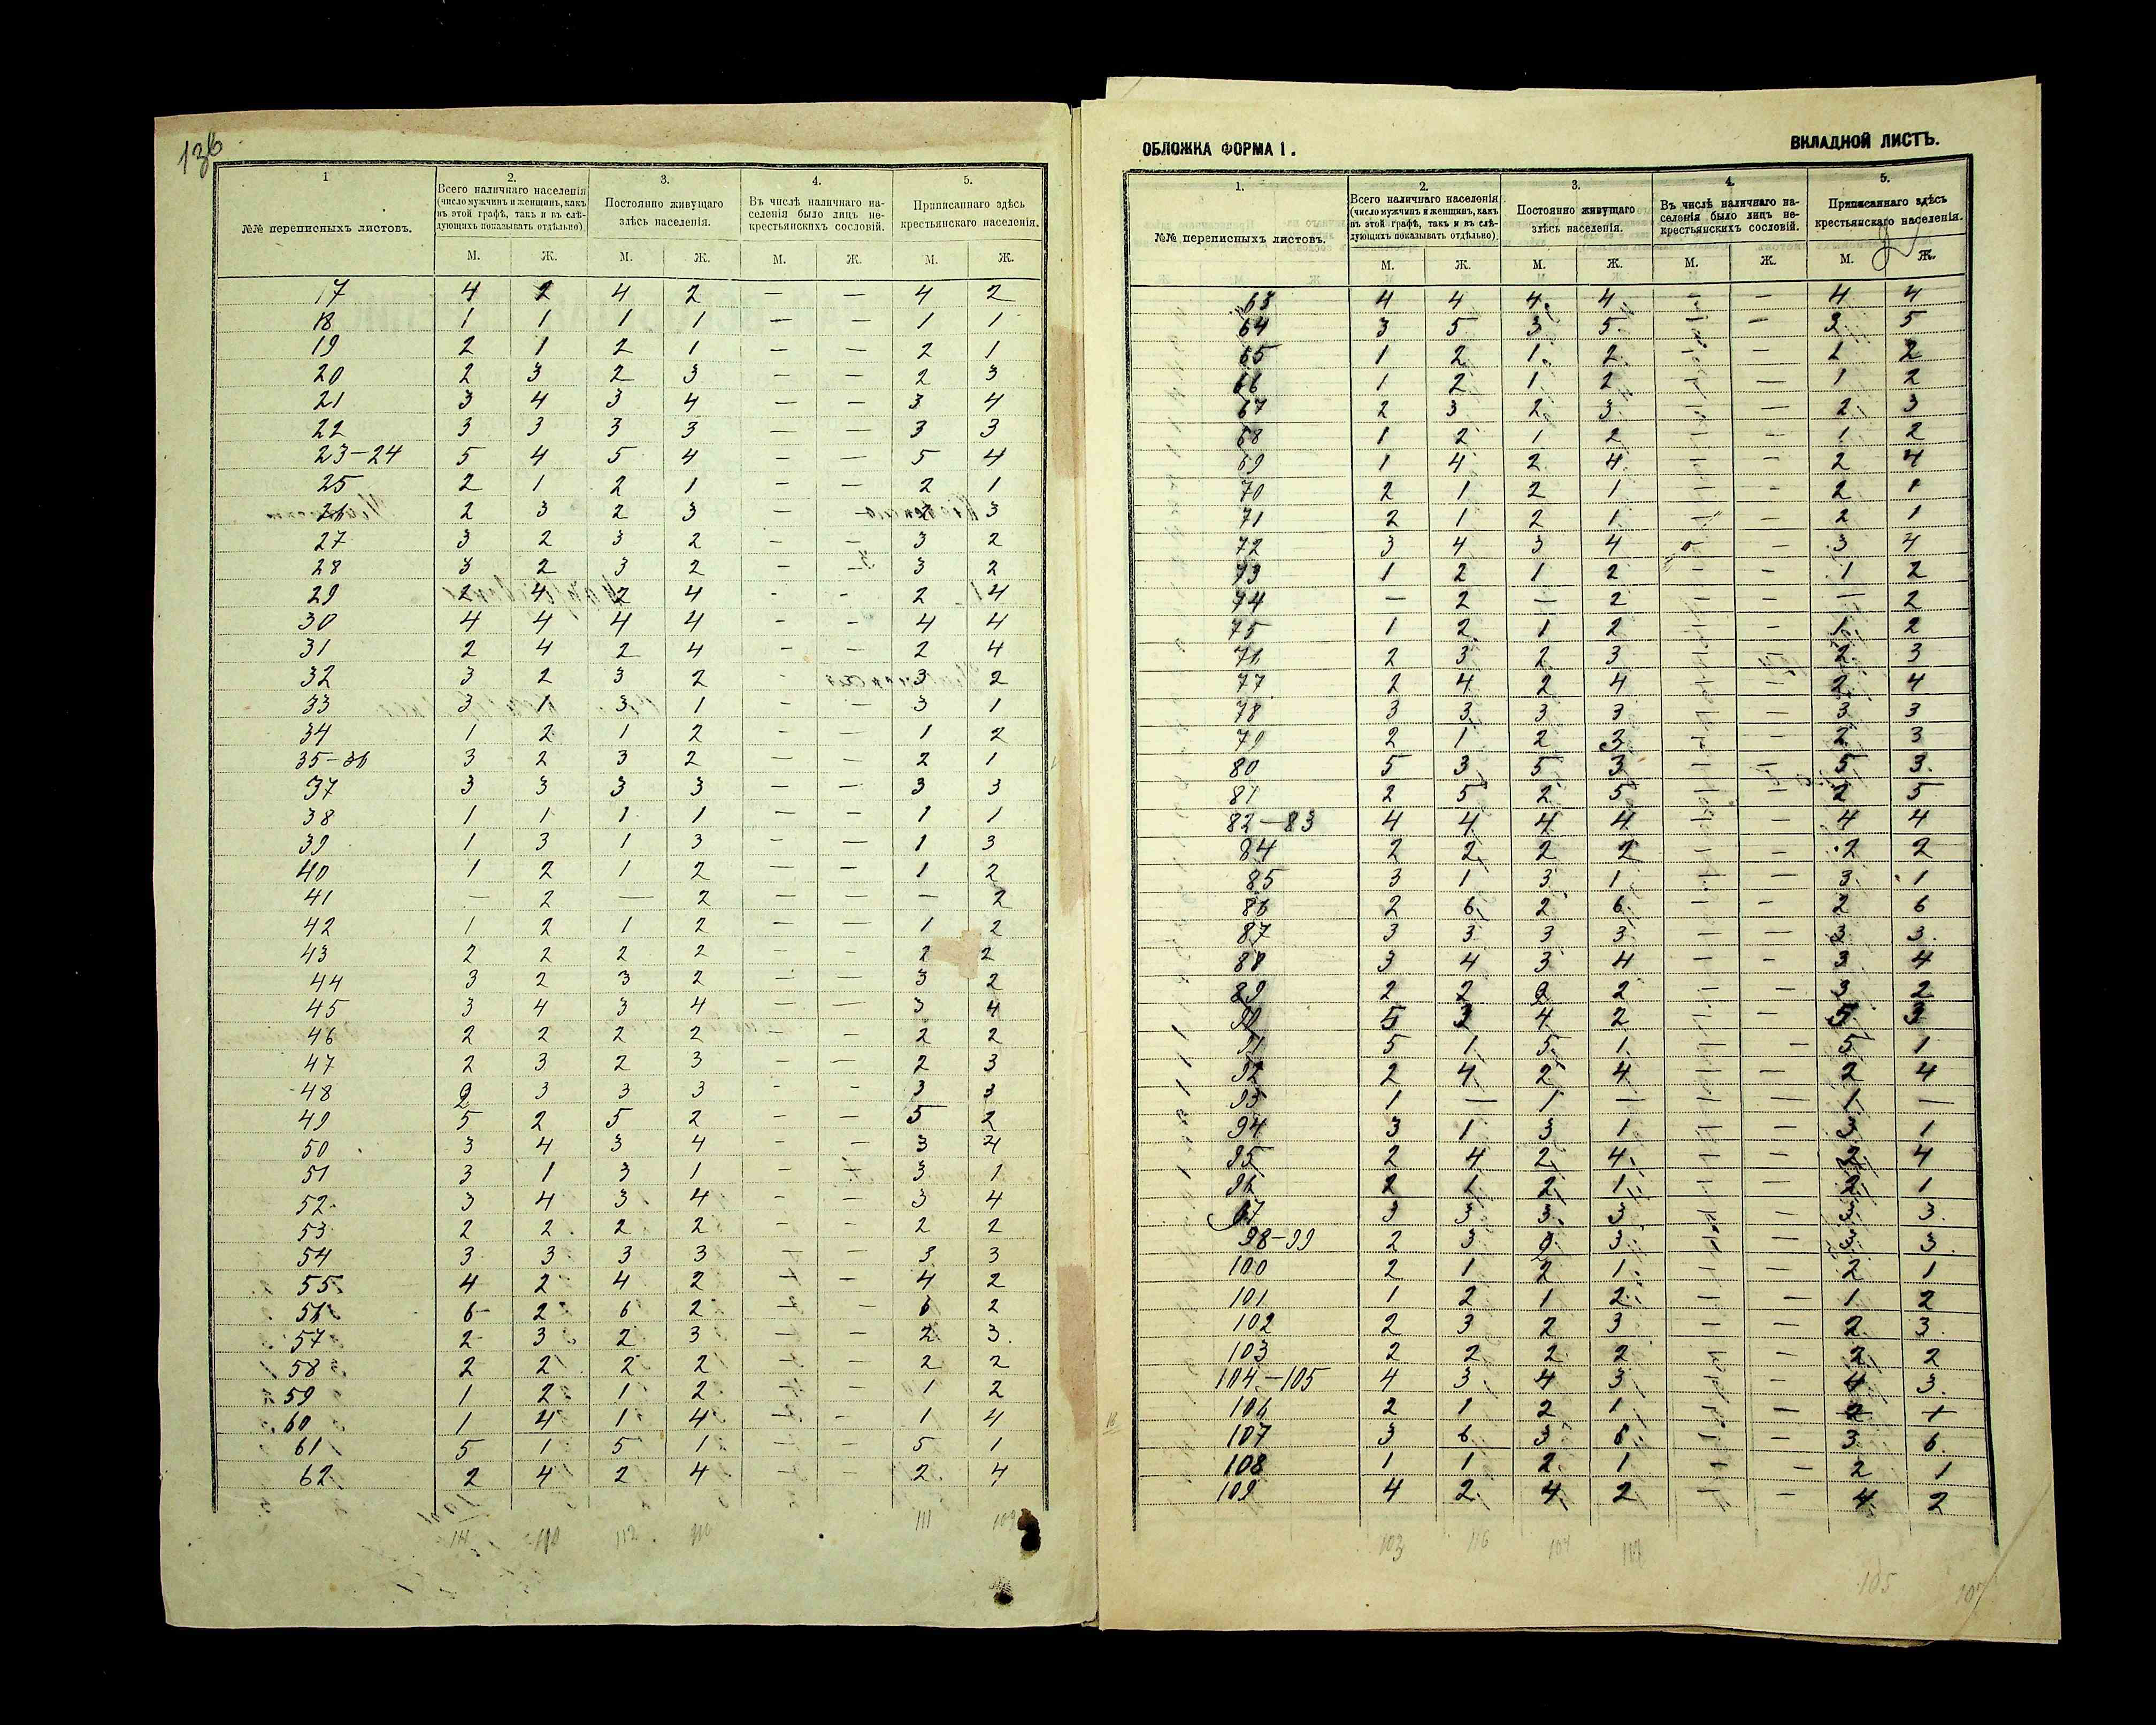 136
1
2.
3.
4.
5.
№№ переписныхъ листовъ.
Всего наличнаго населенія (число мужчинъ и женщинъ, какъ въ этой графѣ, такъ и въ слѣдующихъ показывать отдѣльно)
Постоянно живущаго здѣсь населенія.
Въ числѣ наличнаго населенія было лицъ некрестьянскихъ сословій.
Приписаннаго здѣсь крестьянскаго населенія.
М. Ж. М. Ж. М. Ж. М. Ж.
17 4 2 4 2 — — 4 2
18 1 1 1 1 — — 1 1
19 2 1 2 1 — — 2 1
20 2 3 2 3 — — 2 3
21 3 4 3 4 — — 3 4
22 3 3 3 3 — — 3 3
23—24 5 4 5 4 — — 5 4
25 2 1 2 1 — — 2 1
26 2 3 2 3 — — 2 3
27 3 2 3 2 — — 3 2
28 3 2 3 2 — — 3 2
29 2 4 2 4 - - 2 4
30 4 4 4 4 - - 4 4
31 2 4 2 4 - - 2 4
32 3 2 3 2 - 3 2
33 3 1 3 1 - — 3 1
34 1 2 1 2 - — 1 2
35—36 3 2 3 2 — — 2 1
37 3 3 3 3 — — 3 3
38 1 1 1 1 — — 1 1
39 1 3 1 3 — — 1 3
40 1 2 1 2 — — 1 2
41 — 2 — 2 — — — 2
42 1 2 1 2 — — 1 2
43 2 2 2 2 - - 2 2
44 3 2 3 2 — — 3 2
45 3 4 3 4 — — 3 4
46 2 2 2 2 - — 2 2
47 2 3 2 3 — — 2 3
48 2 3 3 3 - - 3 3
49 5 2 5 2 — — 5 2
50 3 4 3 4 - - 3 4
51 3 1 3 1 - 3 1
52 3 4 3 4 — — 3 4
53 2 2 2 2 - - 2 2
54 3 3 3 3 — — 3 3
55 4 2 4 2 — - 4 2
56 6 2 6 2 — - 6 2
57 2 3 2 3 — — 2 3
58 2 2 2 2 — — 2 2
59 1 2 1 2 — - 1 2
60 1 4 1 4 — - 1 4
61 5 1 5 1 — — 5 1
62 2 4 2 4 — — 2 4
110 112 110 111 109
ОБЛОЖКА ФОРМА 1.
ВКЛАДНОЙ ЛИСТЪ.
1.
2.
3.
4.
5.
№№ переписныхъ листовъ.
Всего наличнаго населенія (число мужчинъ и женщинъ, какъ въ этой графѣ, такъ и въ слѣдующихъ показывать отдѣльно).
Постоянно живущаго здѣсь населенія.
Въ числѣ наличнаго населенія было лицъ некрестьянскихъ сословій.
Приписаннаго здѣсь крестьянскаго населенія.
М. Ж. М. Ж. М. Ж. М. Ж.
63 4 4 4 4 — — 4 4
64 3 5 3 5 — — 3 5
65 1 2 1 2 — — 1 2
66 1 2 1 2 — — 1 2
67 2 3 2 3 — — 2 3
68 1 2 1 2 — - 1 2
69 1 4 2 4 — - 2 4
70 2 1 2 1 — - 2 1
71 2 1 2 1 — — 2 1
72 3 4 3 4 — 3 4
73 1 2 1 2 — - 1 2
74 — 2 — 2 — - — 2
75 1 2 1 2 — - 1 2
76 2 3 2 3 — 2 3
77 2 4 2 4 — — 2 4
78 3 3 3 3 — — 3 3
79 2 1 2 3 — — 2 3
80 5 3 5 3 — — 5 3
81 2 5 2 5 — — 2 5
82—83 4 4 4 4 — — 4 4
84 2 2 2 2 — - 2 2
85 3 1 3 1 — — 3 1
86 2 6 2 6 — — 2 6
87 3 3 3 3 — — 3 3
88 3 4 3 4 — - 3 4
89 2 2 2 2 — — 3 2
90 5 3 4 2 — — 5 3
91 5 1 5 1 — — 5 1
92 2 4 2 4 — — 2 4
93 1 — 1 — — — 1 —
94 3 1 3 1 — — 3 1
95 2 4 2 4 — — 2 4
96 2 1 2 1 — — 2 1
97 3 3 3 3 — — 3 3
98—99 2 3 2 3 — — 3 3
100 2 1 2 1 — — 2 1
101 1 2 1 2 — — 1 2
102 2 3 2 3 — — 2 3
103 2 2 2 2 — — 2 2
104—105 4 3 4 3 — — 4 3
106 2 1 2 1 — — 2 1
107 3 6 3 6 — — 3 6
108 1 1 2 1 — — 2 1
109 4 2 4 2 — — 4 2
103 116 105 107